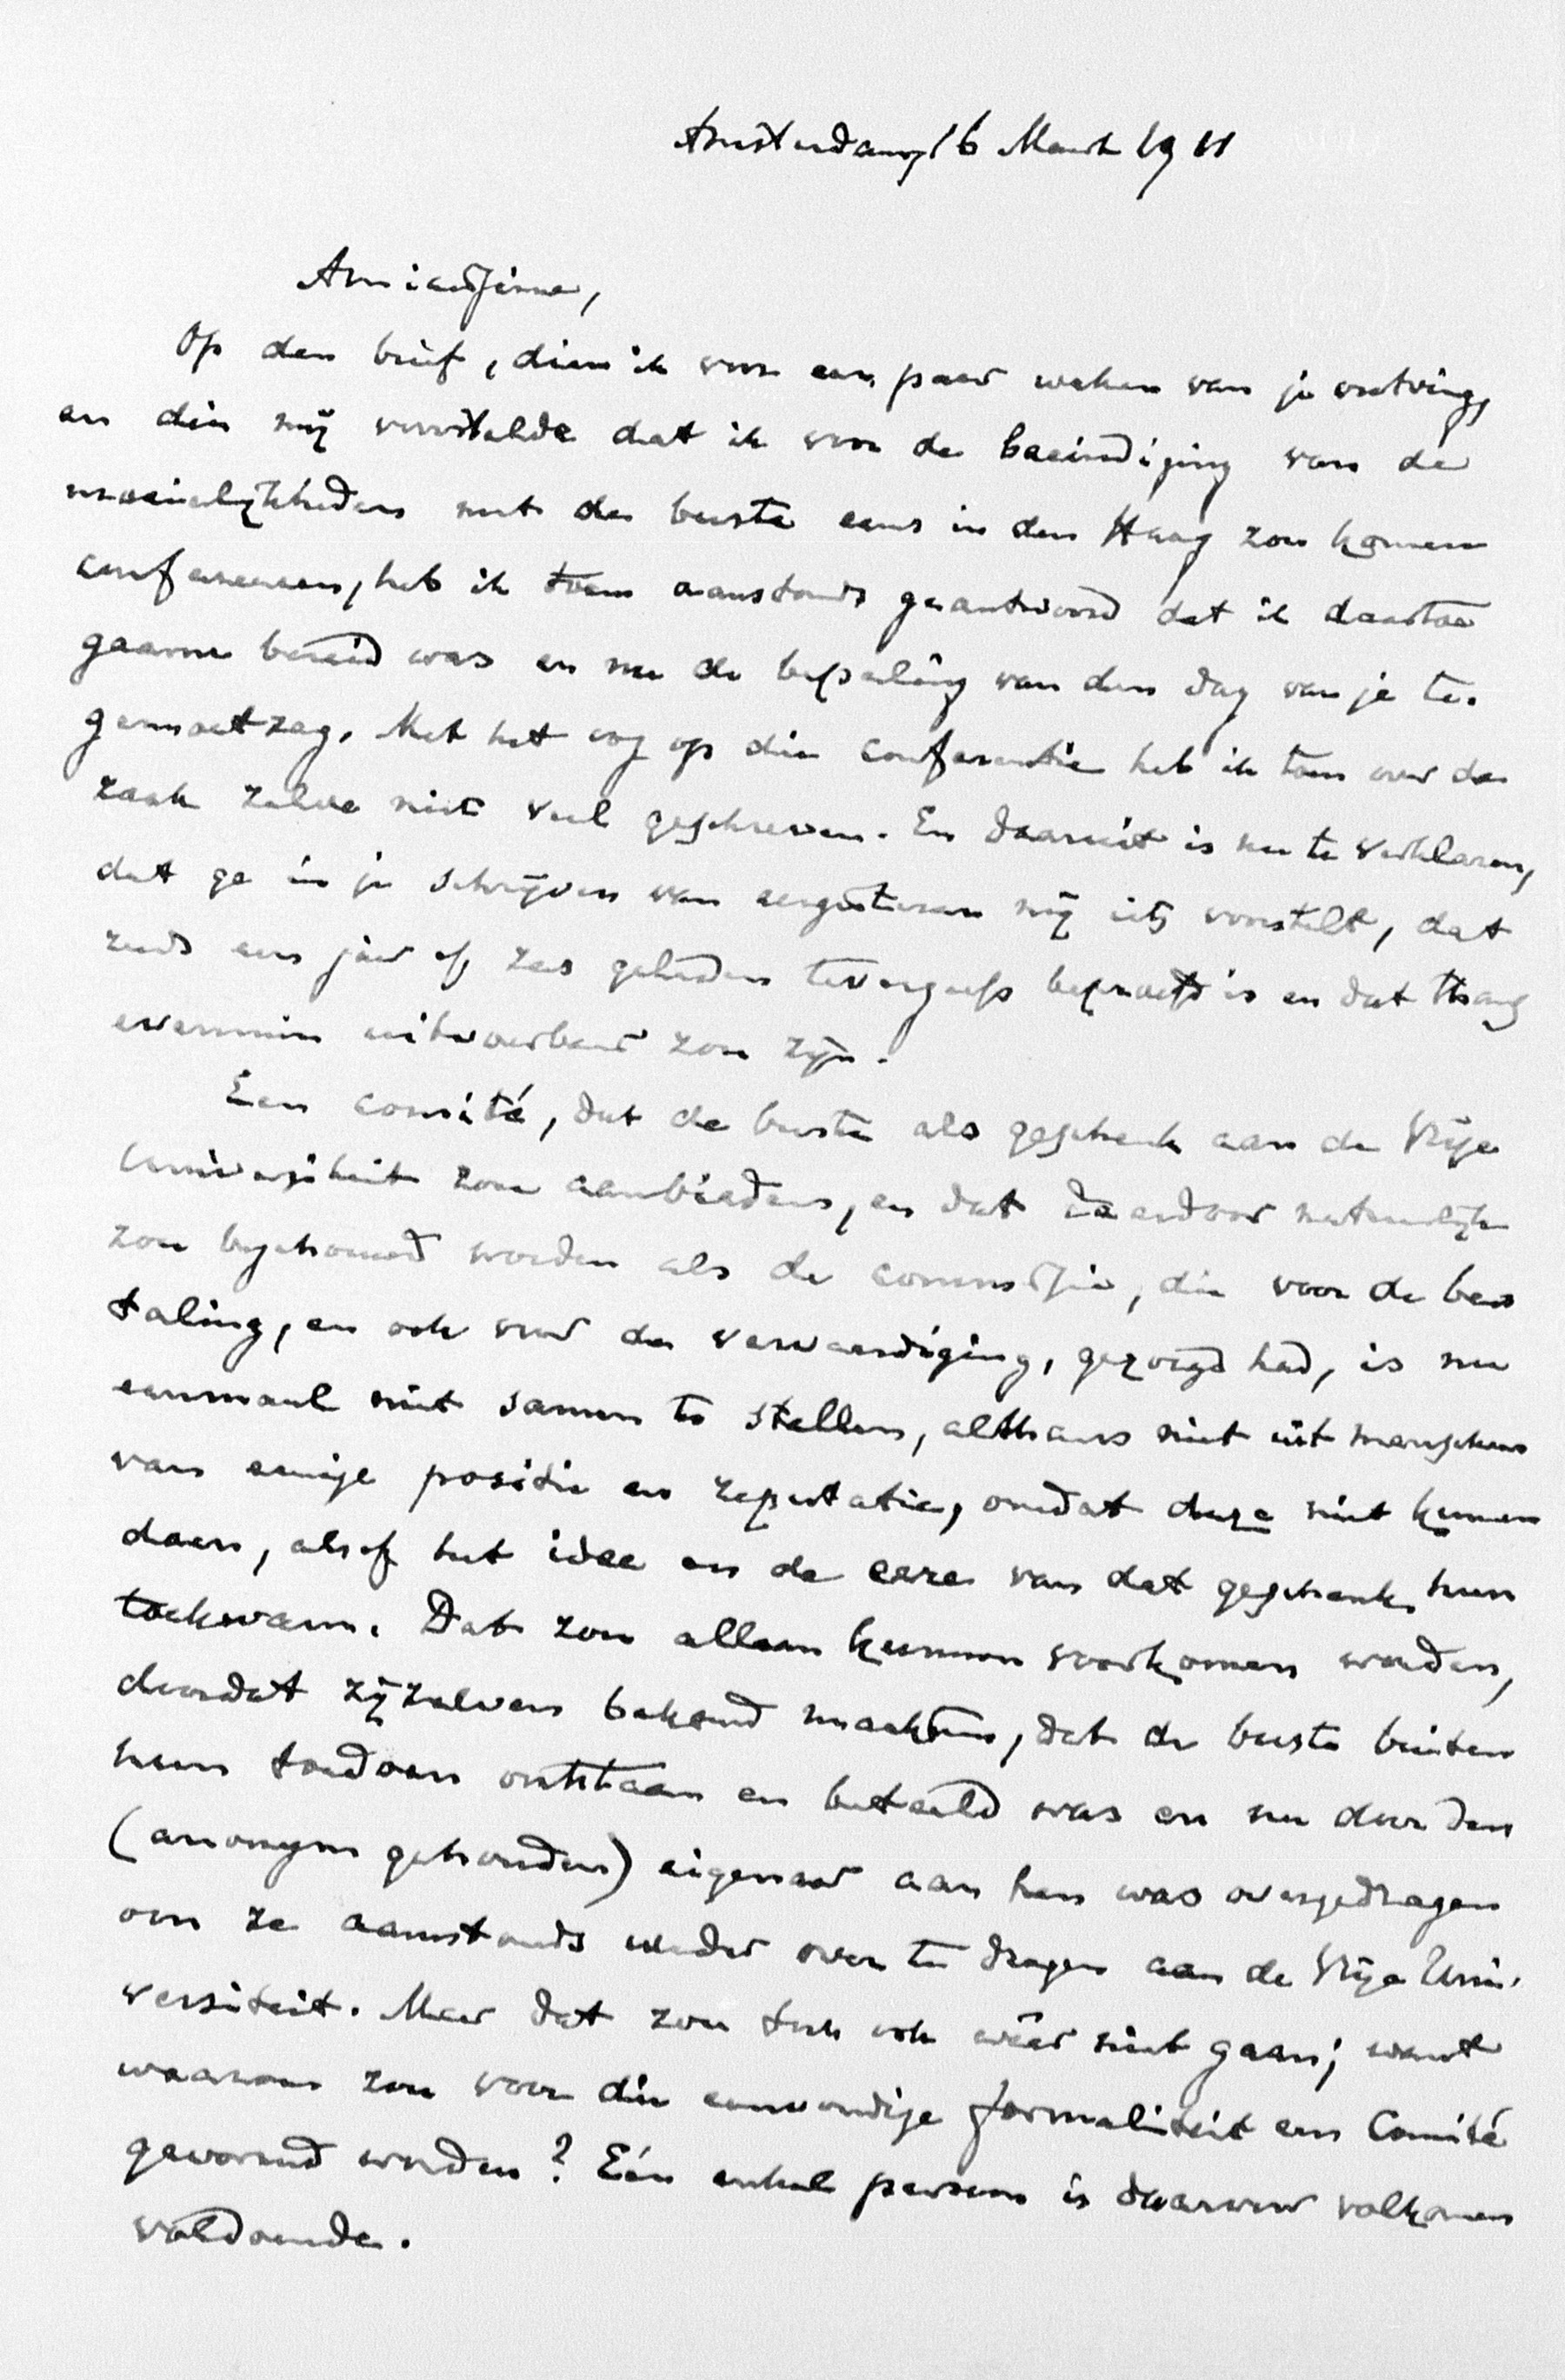 Amsterdam, 16 Maart 1911
Amicissime,
Op den brief, dien ik voor een paar weken van je ontving,
en die mij voorstelde dat ik voor de beëindiging van de
moeielijkheden met de buste eens in den Haag zou komen
confereeren, heb ik toen aanstonds geantwoord dat ik daartoe
gaarne bereid was en nu de bepaling van den dag van je te-
gemoetzag. Met het oog op die conferentie heb ik toen over de
zaak zelve niet veel geschreven. En daaruit is nu te verklaren,
dat ge in je schrijven van eergisteren mij iets voorstelt, dat
reeds een jaar of zes geleden tevergeefs beproefd is en dat thans
evenmin uitvoerbaar zou zijn.
Een comité, dat de buste als geschenk aan de Vrije
Universiteit zou aanbieden, en dat daardoor natuurlijk
zou beschouwd worden als de commissie, die voor de be-
taling, en ook voor de vervaardiging, gezorgd had, is nu
eenmaal niet samen te stellen, althans niet uit menschen
van eenige positie en reputatie, omdat deze niet kunnen
doen, alsof het idee en de eere van dat geschenk hun
toekwam. Dat zou alleen kunnen voorkomen worden,
doordat zij zelven bekend maakten, dat de buste buiten
hun toedoen ontstaan en betaald was en nu door den
(anonym gehouden) eigenaar aan hen was overgedragen
om ze aanstonds weder over te dragen aan de Vrije Uni-
versiteit. Maar dat zou toch ook wéér niet gaan; want
waarom zou voor die eenvoudige formaliteit een Comité
gevormd worden? Eén enkel persoon is daarvoor volkomen
voldoende.